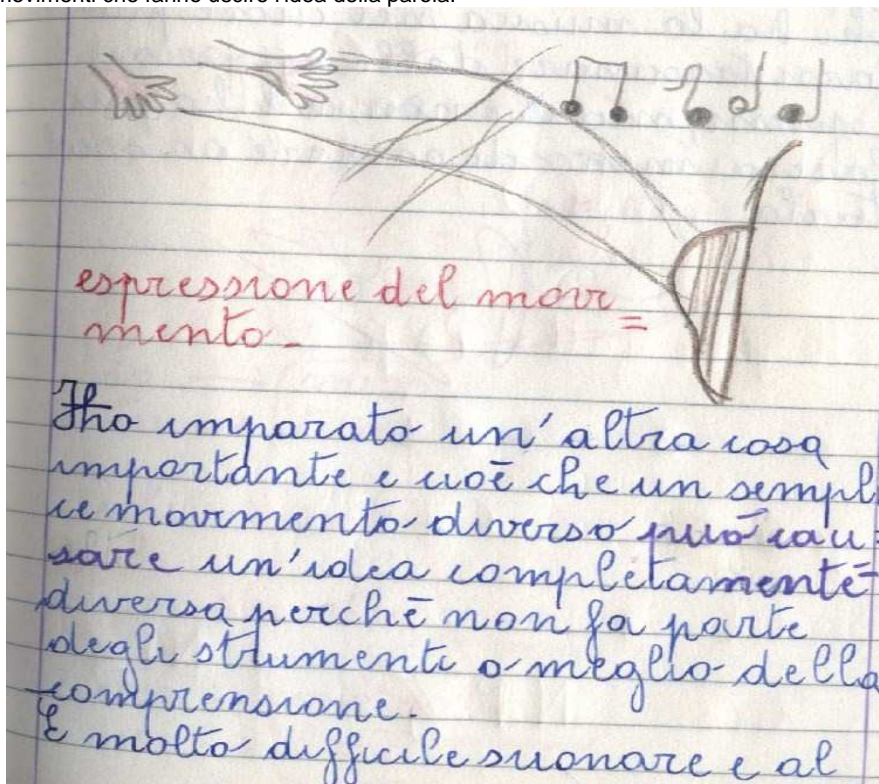 movimenti che fanno uscire l'idea della parola.
espressione del movi=
mento-
Ho imparato un'altra cosa
importante e cioè che un sempli
ce movimento diverso può cau=
sare un'idea completamente
diversa perchè non fa parte
degli strumenti o meglio della
comprensione.
È molto difficile suonare e al